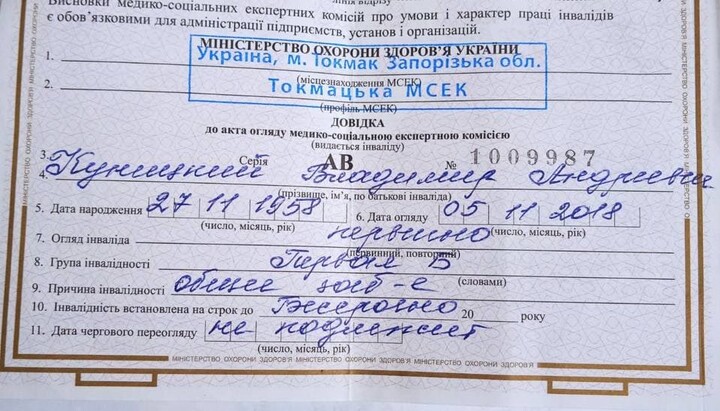 Висновки медико-соціальних експертних комісій про умови і характер праці інвалідів
є обов'язковими для адміністрації підприємств, установ і організацій.
МІНІСТЕРСТВО ОХОРОНИ ЗДОРОВ'Я УКРАЇНИ
1.
Україна, м. Токмак Запорізька обл.
(місцезнаходження МСЕК)
2.
Токмацька МСЕК
(профіль МСЕК)
ДОВІДКА
до акта огляду медико-соціальною експертною комісією
(видається інваліду)
3. Серія АВ № 1009987
4. Куницкий Владимир Андреевич
(прізвище, ім'я, по батькові інваліда)
5. Дата народження 27 11 1958 6. Дата огляду 05 11 2018
(число, місяць, рік) (число, місяць, рік)
7. Огляд інваліда первинно
(первинний, повторний)
8. Група інвалідності Первая Б
(словами)
9. Причина інвалідності общее заб-е
10. Інвалідність встановлена на строк до Бессрочно 20 року
11. Дата чергового переогляду не подлежит
(число, місяць, рік)
МІНІСТЕРСТВО ОХОРОНИ ЗДОРОВ'Я МІНІСТЕРСТВО ОХОРОНИ ЗДОРОВ'Я УКРАЇНИ МІНІСТЕРСТВО ОХОРОНИ ЗДОРОВ'Я